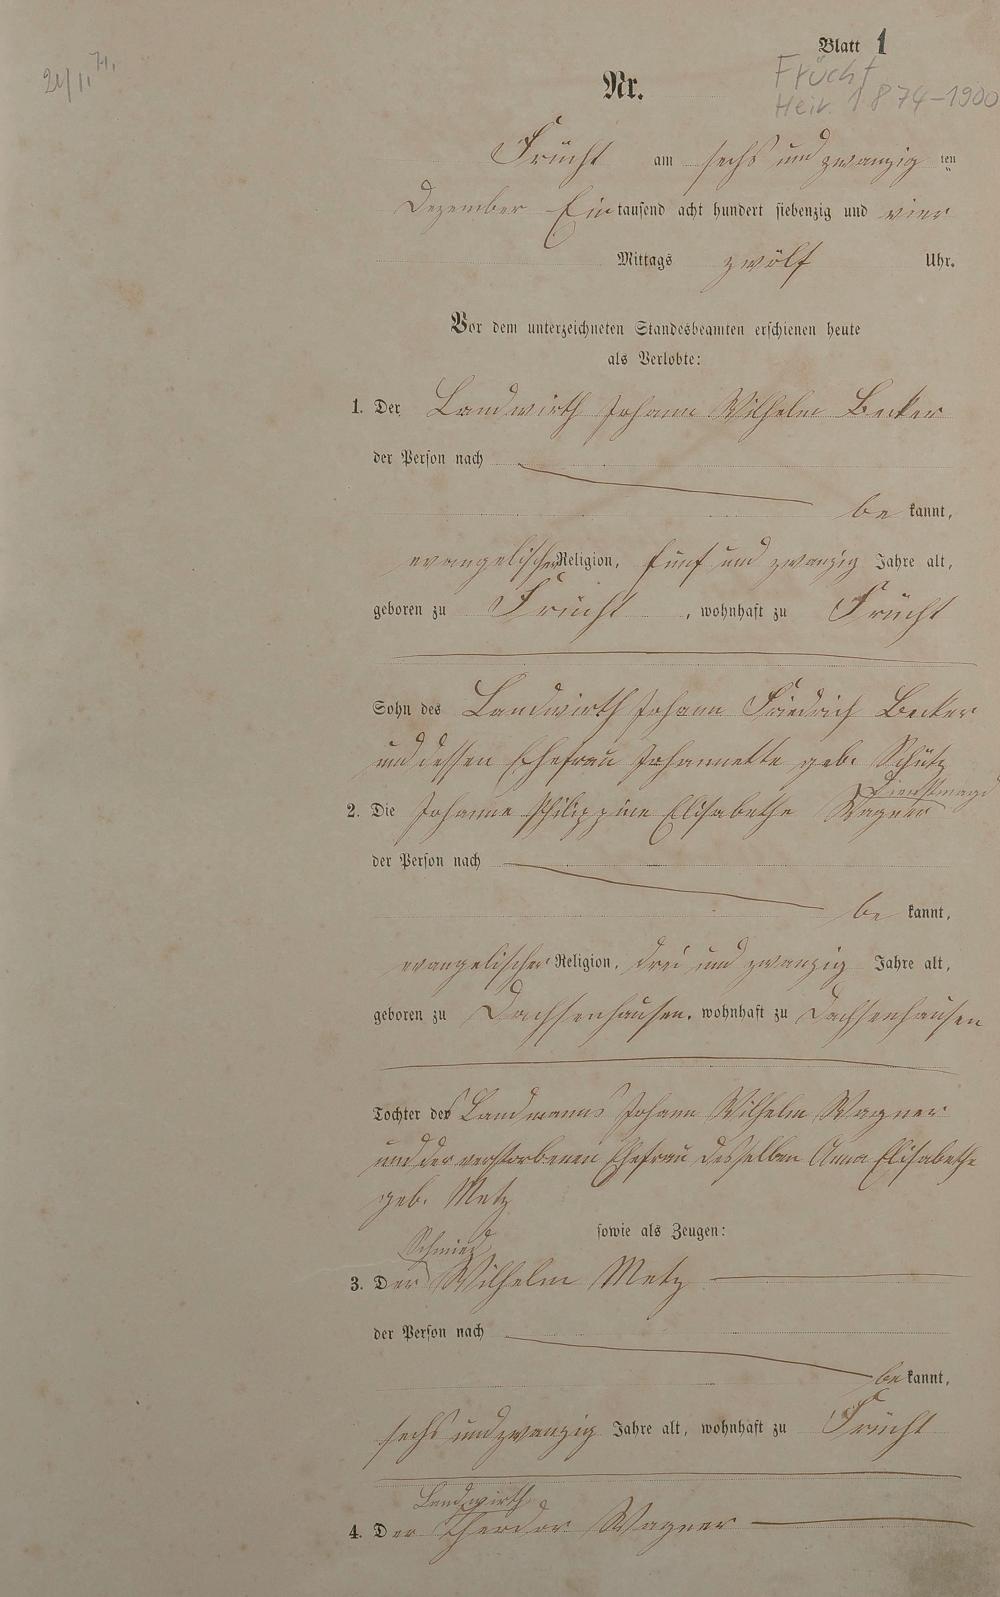 Blatt 1
Frücht
Heir. 1874-1900
Nr.
Frücht am sechs und zwanzig ten
Dezember Ein tausend acht hundert siebenzig und vier
Mittags zwölf Uhr.
Vor dem unterzeichneten Standesbeamten erschienen heute
als Verlobte:
1. Der Landwirth Johann Wilhelm Becker
der Person nach
be kannt,
evangelischer Religion, fünf und zwanzig Jahre alt,
geboren zu Frücht, wohnhaft zu Frücht
Sohn des Landwirth Johann Friedrich Becker
und dessen Ehefrau Johannette geb. Schütz
Dienstmagd
2. Die Johanne Philippine Elisabethe Wagner
der Person nach
be kannt,
evangelischer Religion, drei und zwanzig Jahre alt,
geboren zu Dachsenhausen, wohnhaft zu Dachsenhausen
Tochter des Landmanns Johann Wilhelm Wagner
und der verstorbenen Ehefrau desselben Anna Elisabethe
geb. Metz
sowie als Zeugen:
Schmied
3. Der Wilhelm Metz
der Person nach
be kannt,
sechs und zwanzig Jahre alt, wohnhaft zu Frücht
Landwirth
4. Der Theodor Wagner